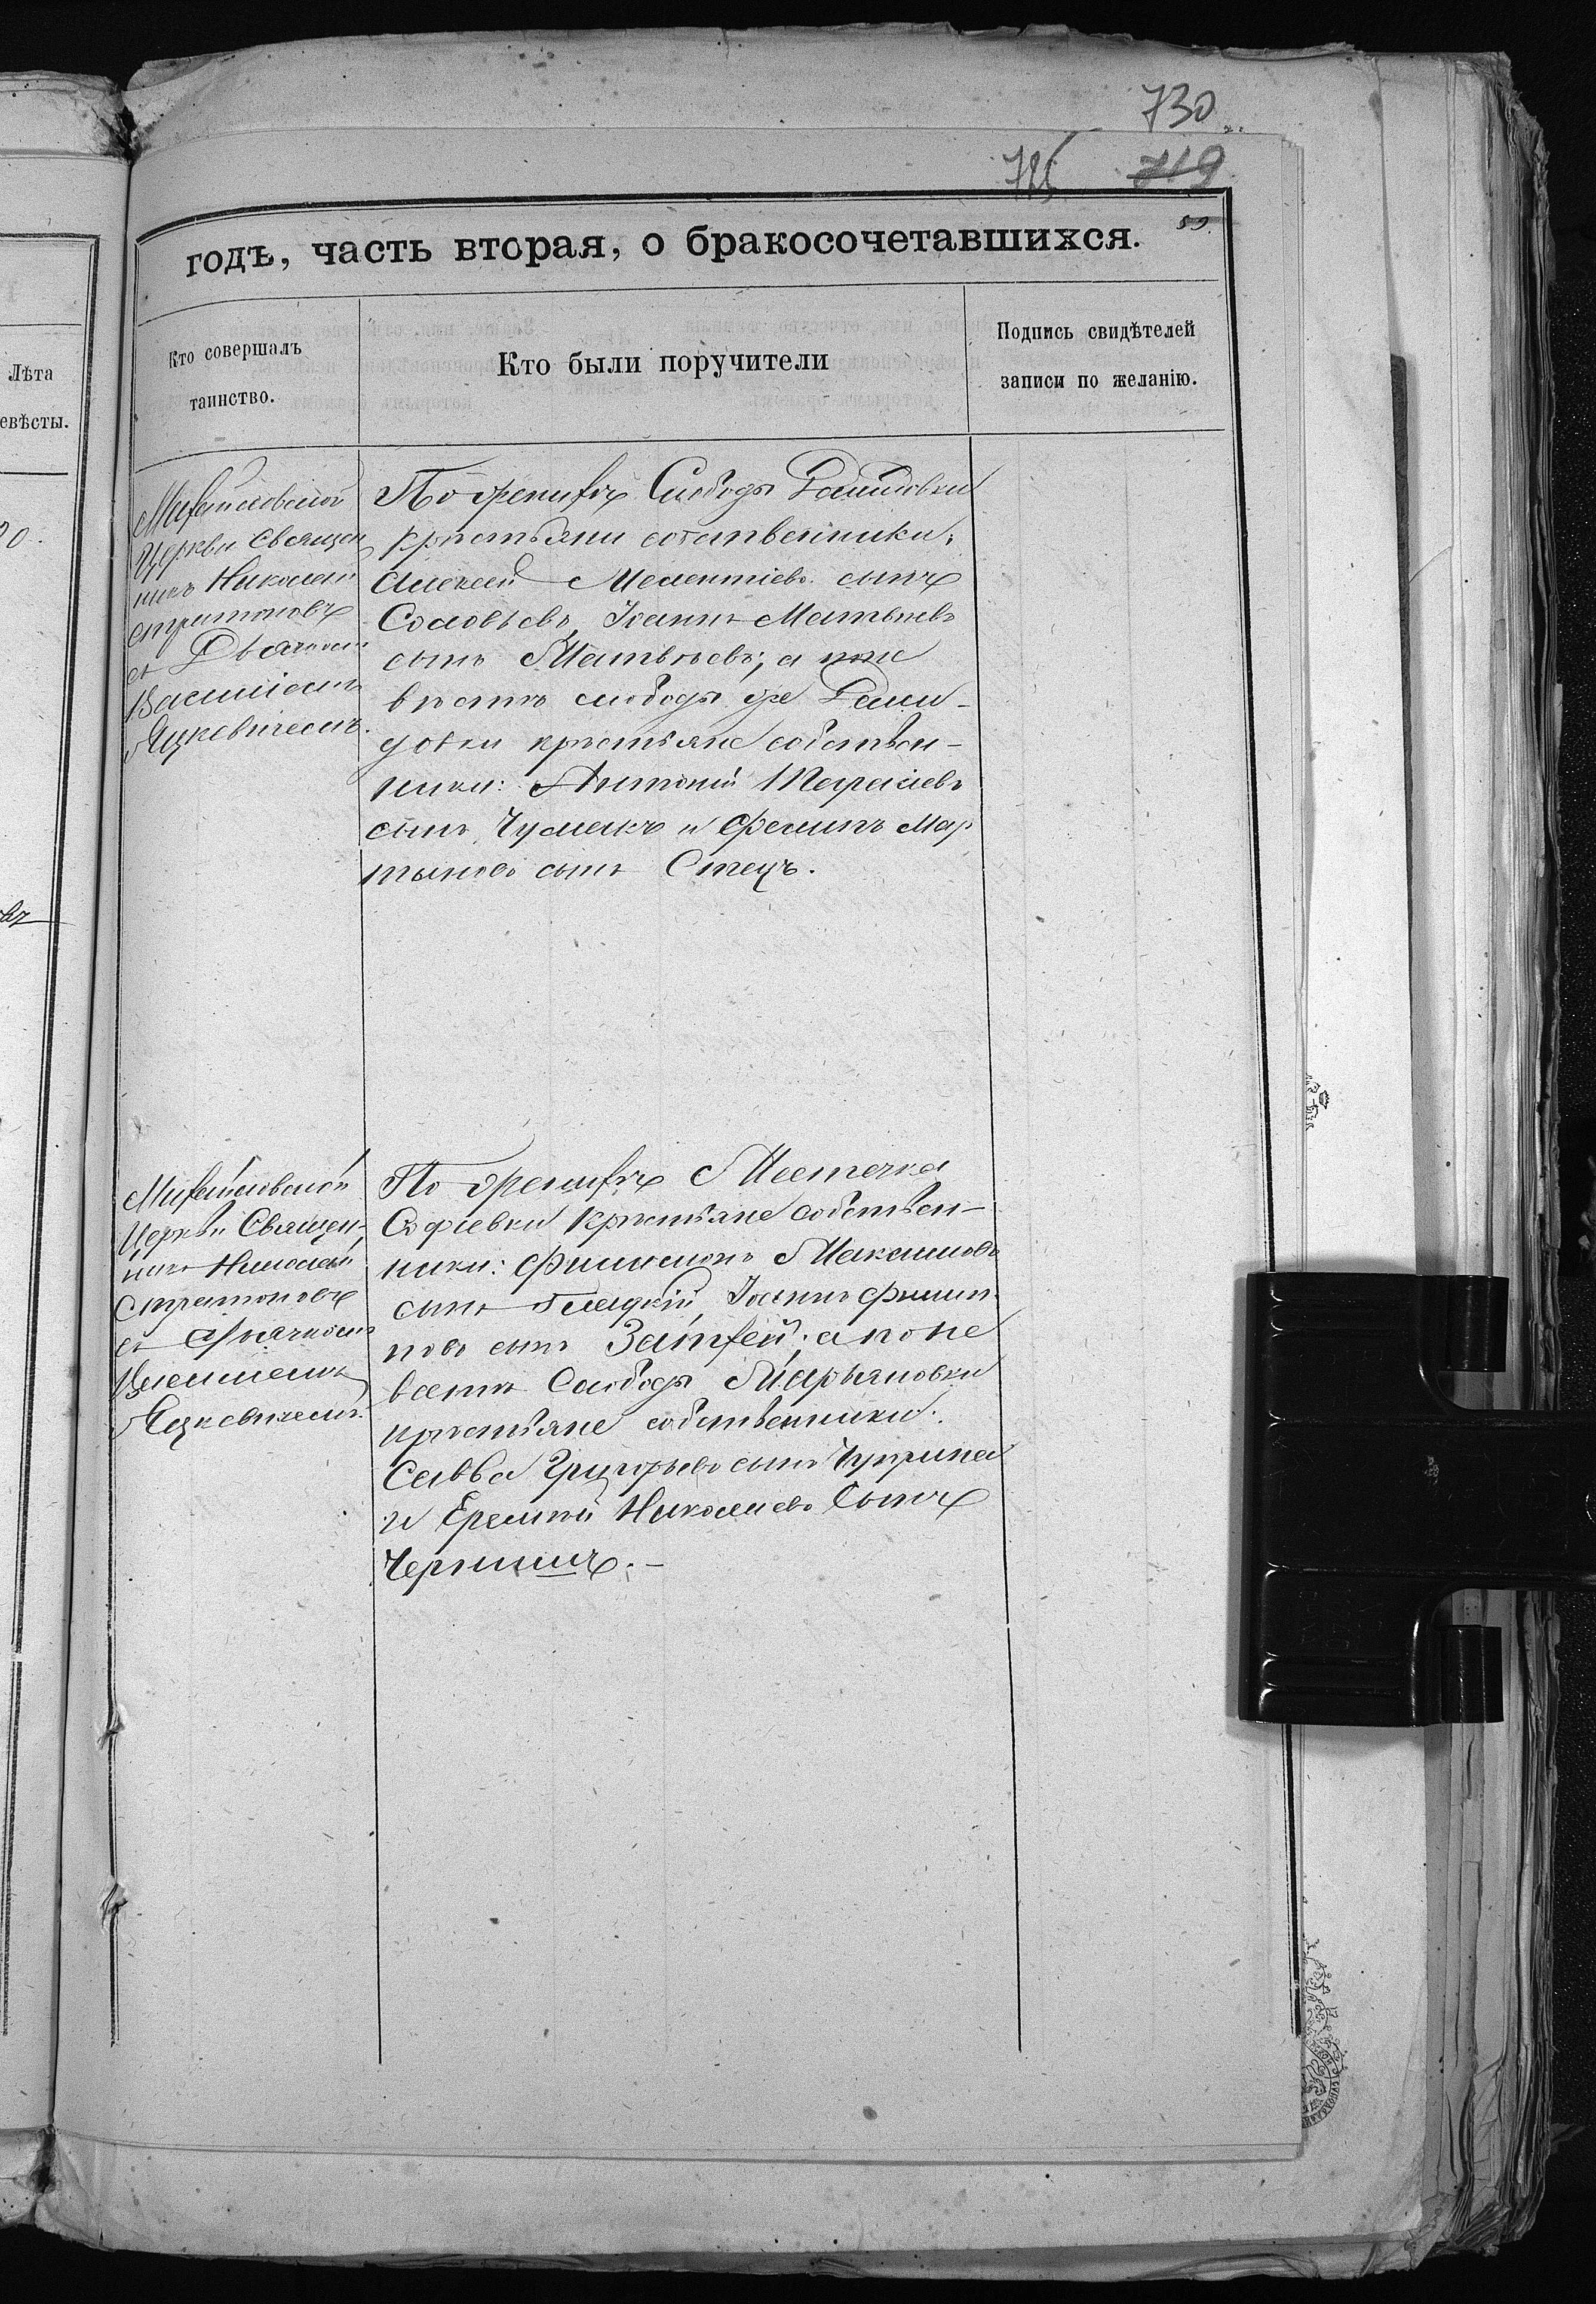 730
719
59.
годъ, часть вторая, о бракосочетавшихся.
Лѣта
евѣсты.
Кто совершалъ
таинство.
Кто были поручители
Подпись свидѣтелей
записи по желанію.
Михайловской
Церкви Священ
никъ Николай
Стратоновъ
съ Дьячкомъ
Василіемъ
Яцкевичемъ.
По женихѣ Слободы Демидовки
крестьяни собственники:
Алексей Мелентіевъ сынъ
Соловьевъ, Іоаннъ Матвѣевъ
сынъ Матвѣевъ; а по не
вѣстѣ слободы же Деми-
довки крестьяне собствен-
ники: Антоній Герасіевъ
сынъ Чумакъ и Филипъ Мар
тыновъ сынъ Стецъ.
Михайловской
Церкви Священ-
никъ Николай
Стратоновъ
съ Дьячкомъ
Василіемъ
Яцкевичемъ.
По женихѣ Местечка
Софіевки крестьяне собствен-
ники: Филимонъ Максимовъ
сынъ Гладкій, Іоаннъ Филип-
повъ сынъ; а по не
вестѣ Слободы Марьяновки
крестьяне собственники:
Савва Григорьевъ сынъ Чуприна
и Еремій Николаевъ Сынъ
Чернишъ.-